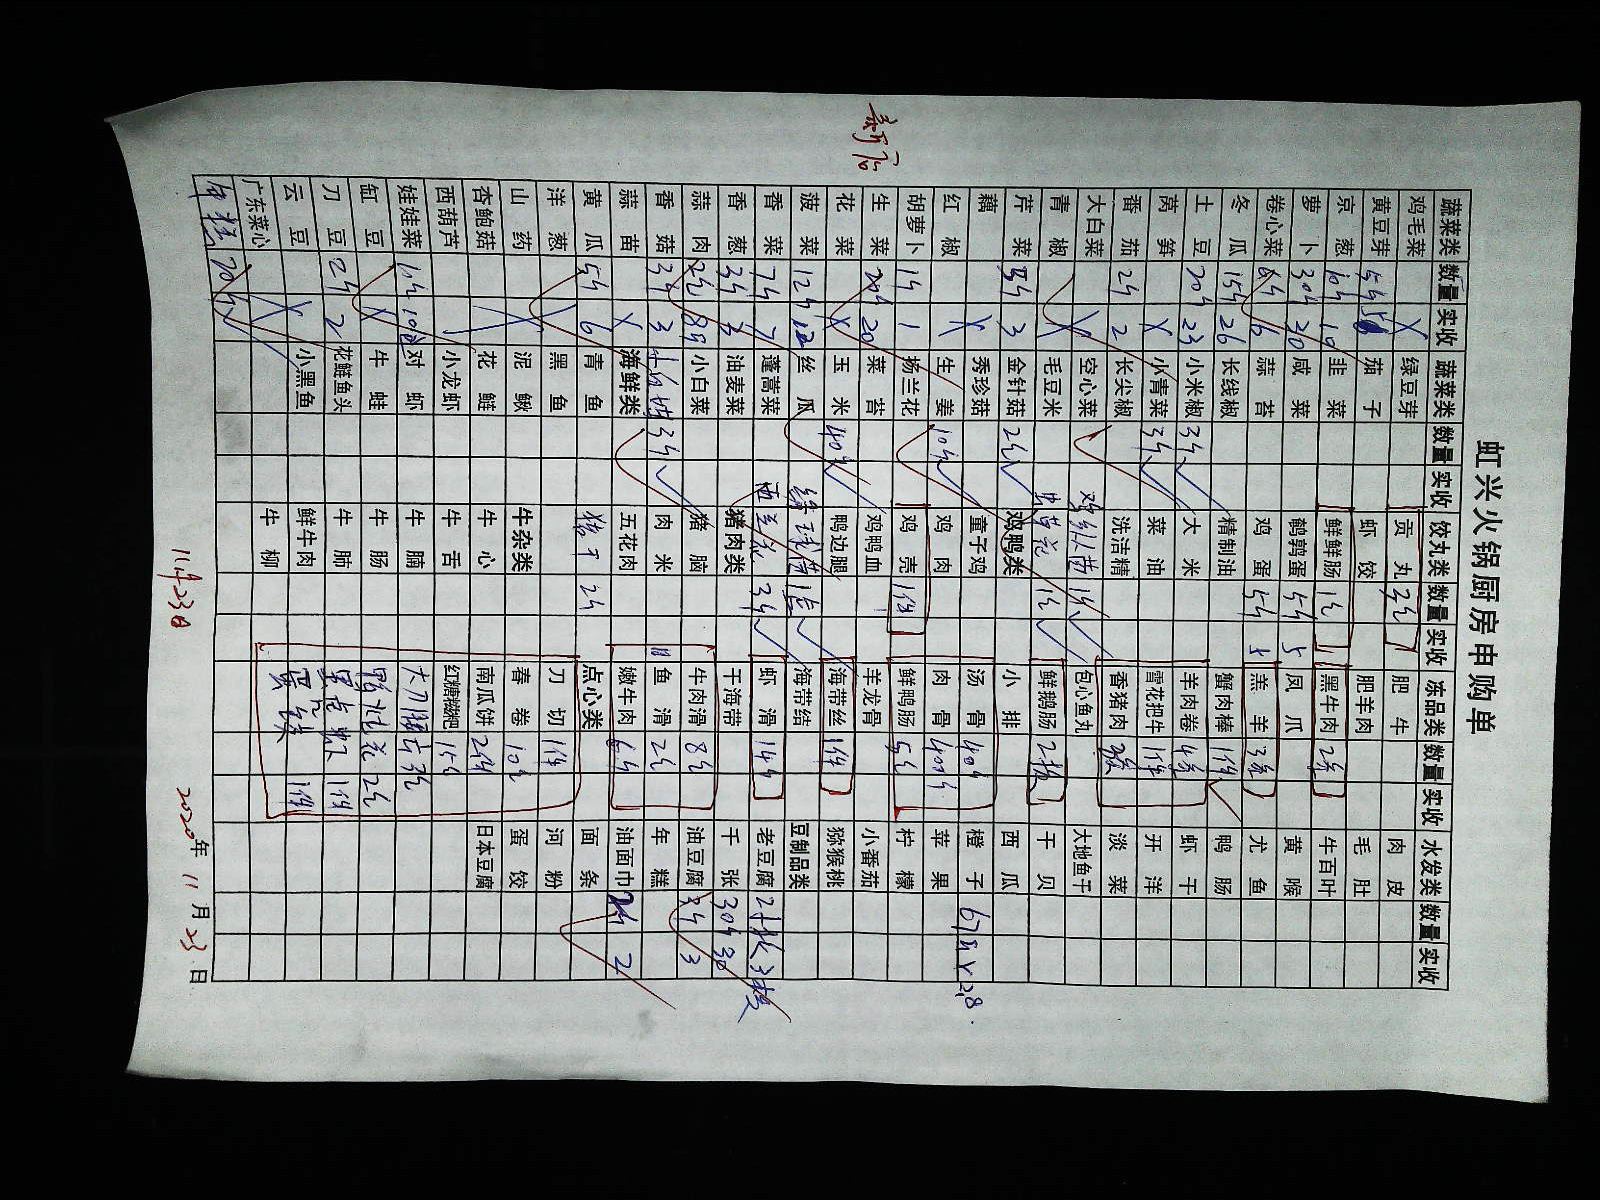 虹兴火锅厨房申购单
新店
蔬菜类 数量 实收 蔬菜类 数量 实收 饺丸类 数量 实收 冻品类 数量 实收 水发类 数量 实收
鸡毛菜 X 绿豆芽 贡丸 2包 肥牛 肉皮
黄豆芽 5斤 茄子 虾饺 肥羊肉 毛肚
京葱 10斤 19 韭菜 鲜鲜肠 1包 黑牛肉 2条 牛百叶
萝卜 30斤 20 咸菜 鹌鹑蛋 5斤 5 凤爪 黄喉
卷心菜 6斤 6 蒜苔 鸡蛋 5斤 羔羊 3条 尤鱼
冬瓜 15斤 26 长线椒 精制油 蟹肉棒 1件 鸭肠
土豆 20斤 23 小米椒 3斤 大米 羊肉卷 4条 虾干
莴笋 X 小青菜 3斤 菜油 雪花把牛 1件 开洋
番茄 2斤 2 长尖椒 洗洁精 香猪肉 淡菜
大白菜 空心菜 1斤 包心鱼丸 大地鱼干
青椒 X 毛豆米 虫草花 1斤 鲜鹅肠 2板 干贝
芹菜 3斤 3 金针菇 2斤 鸡鸭类 小排 西瓜
藕 秀珍菇 童子鸡 汤骨 40斤 橙子
红椒 X 生姜 10斤 鸡肉 肉骨 40斤 苹果
胡萝卜 1斤 1 扬兰花 鸡壳 1件 鲜鸭肠 5包 柠檬
生菜 20斤 20 菜苔 鸡鸭血 羊龙骨 小番茄
花菜 X 玉米 40斤 鸭边腿 海带丝 1件 猕猴桃
菠菜 12斤 12 丝瓜 绣球菇 1盒 海带结 豆制品类
香菜 7斤 7 蓬蒿菜 西兰花 3斤 虾滑 14斤 老豆腐 2板 3板
香葱 3斤 3 油麦菜 猪肉类 干海带 千张 30斤 30
蒜肉 小白菜 猪脑 牛肉滑 8包 油豆腐 3斤 3
香菇 3斤 3 3斤 肉米 鱼滑 2包 年糕
蒜苗 X 海鲜类 五花肉 嫩牛肉 6斤 油面巾 2斤 2
黄瓜 5斤 6 青鱼 猪肝 2斤 点心类 面条
洋葱 黑鱼 刀切 1件 河粉
山药 X 泥鳅 牛杂类 春卷 10包 蛋饺
杏鲍菇 花鲢 牛心 南瓜饼 日本豆腐
西葫芦 小龙虾 牛舌 红糖糍粑 15包
娃娃菜 10包 10包 对虾 牛腩
缸豆 X 牛蛙 牛肠 鸭血 2包
刀豆 2斤 2 花鲢鱼头 牛肺 1件
云豆 X 小黑鱼 鲜牛肉 1件
广东菜心 X 牛柳
年糕 20斤
11月23日
2020年11月23日